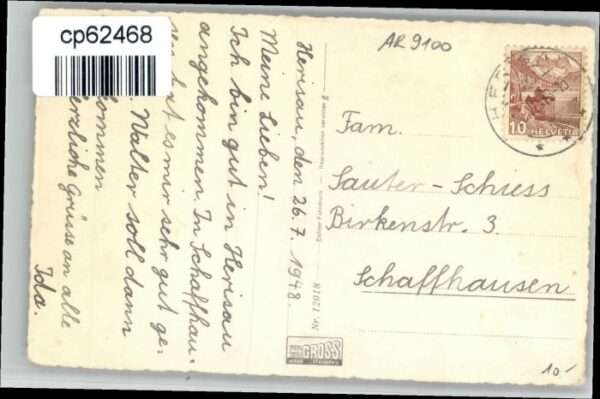 cp62468
AR 9100
Herisau, den 26. 7. 1948.
Meine Lieben!
Ich bin gut in Herisau
angekommen. In Schaffhau-
sen hat es mir sehr gut ge-
Walter soll dann
kommen
herzliche Grüsse an alle
Ida.
Fam.
Sauter-Schiess
Birkenstr. 3.
Schaffhausen
10
HELVETIA
Nr. 12018
GROSS
10.-